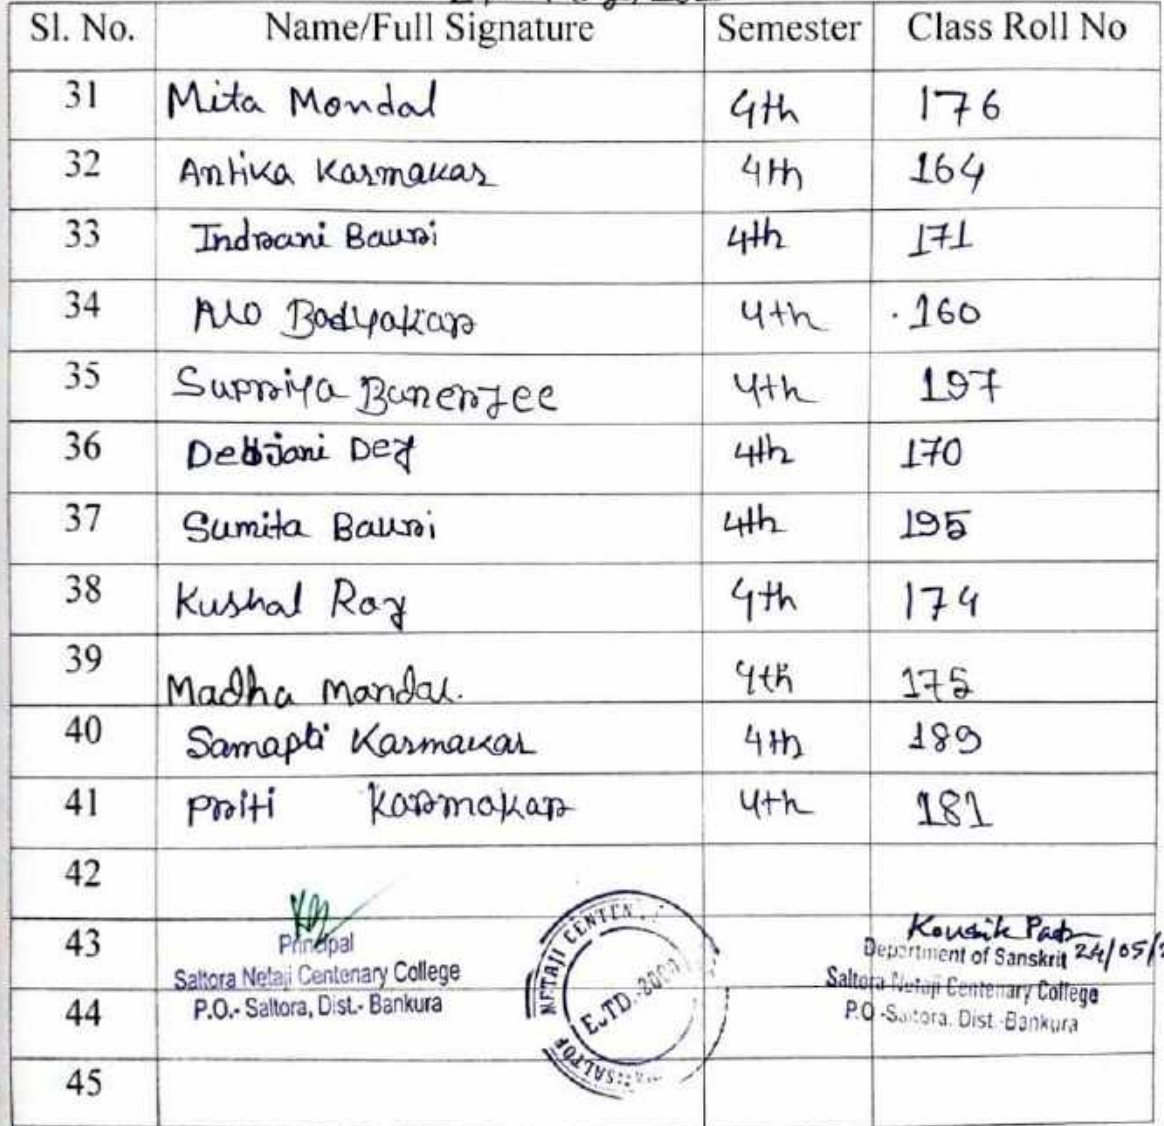 Sl. No. Name/Full Signature Semester Class Roll No
31 Mita Mondal 4th 176
32 Antika Karmakar 4th 164
33 Indrani Bauri 4th 171
34 Alo Badyakar 4th 160
35 Supriya Banerjee 4th 197
36 Debjani Dey 4th 170
37 Sumita Bauri 4th 195
38 Kushal Roy 4th 174
39 Madha Mandal. 4th 175
40 Samapti Karmakar 4th 189
41 Priti Karmakar 4th 181
42
43
Principal
Saltora Netaji Centenary College
P.O.- Saltora, Dist.- Bankura
NETAJI CENTEN
ESTD.-2000
Kousik Patra
Department of Sanskrit 24/05/2
Saltora Netaji Centenary College
P.O.-Saltora, Dist.-Bankura
44
45